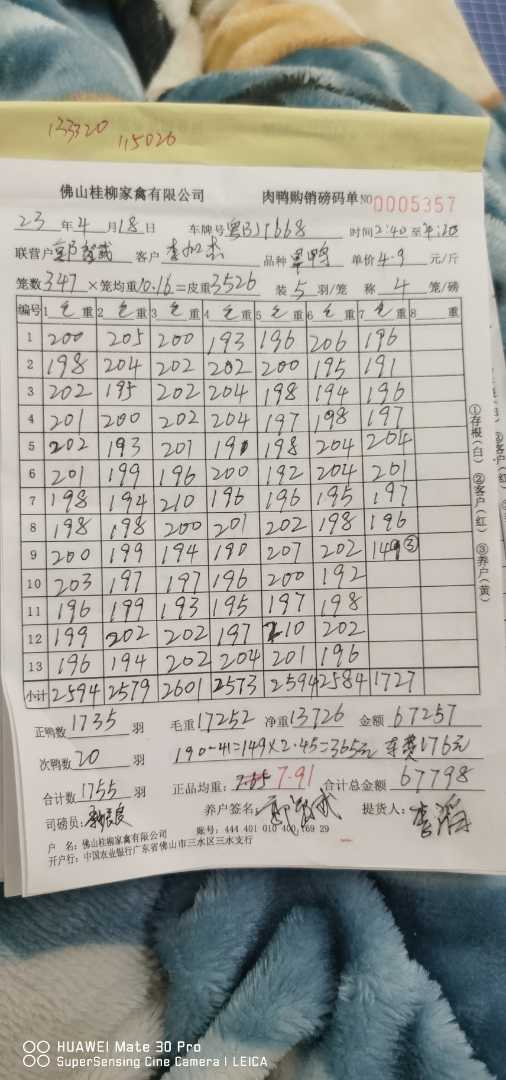 133320
115026
佛山桂柳家禽有限公司 肉鸭购销磅码单 NO 0005357
23 年 4 月 18 日 车牌号 粤BJ1668 时间 2:40 至
联营户 客户 李加杰 品种 单鸭 单价 4.9 元/斤
笼数 347 ×笼均重 10.16 =皮重 3526 装 5 羽/笼 称 4 笼/磅
编号 1 毛 重 2 毛 重 3 毛 重 4 毛 重 5 毛 重 6 毛 重 7 毛 重 8 重
1 200 205 200 193 196 206 196
2 198 204 202 202 200 195 191
3 202 195 202 204 198 194 196
4 201 200 202 204 197 198 197
5 202 193 201 190 198 204 204
6 201 199 196 200 192 204 201
7 198 194 210 196 196 195 197
8 198 198 200 201 202 198 196
9 200 199 194 190 207 202 149 ③
10 203 197 197 196 200 192
11 196 199 193 195 197 198
12 199 202 202 197 210 202
13 196 194 202 204 201 196
小计 2594 2579 2601 2573 2594 2584 1727
正鸭数 1735 羽 毛重 17252 净重 13726 金额 67257
次鸭数 20 羽 190-41=149×2.45=365元 车费176元
合计数 1755 羽 正品均重: 7.91 合计总金额 67798
司磅员: 养户签名: 提货人:
户 名: 佛山桂柳家禽有限公司 账号: 444 401 010 400 169 29
开户行: 中国农业银行广东省佛山市三水区三水支行
①存根(白) ②客户(红) ③养户(黄)
HUAWEI Mate 30 Pro
SuperSensing Cine Camera | LEICA